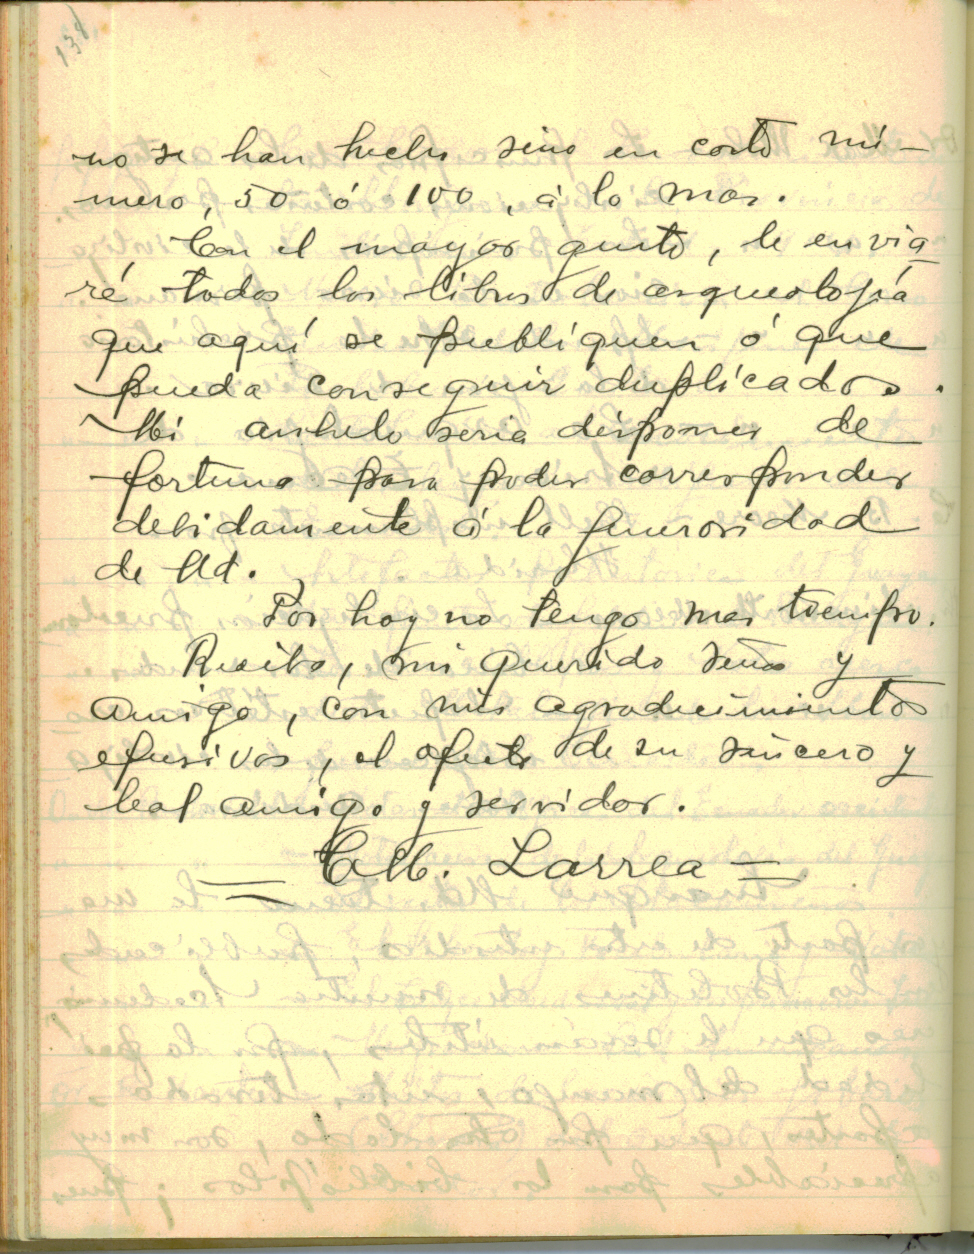 138
no se han hecho sino en corto nú-
mero, 50 ó 100, á lo mas.
Con el mayor gusto, le envia
ré todos los libros de arqueolojía
que aquí se publiquen ó que
pueda conseguir duplicados.
Mi anhelo seria disponer de
fortuna para poder corresponder
debidamente á la generosidad
de Ud.
Por hoy no tengo mas tiempo.
Reciba, mi querido señor y
amigo, con mis agradecimientos
efusivos, el afecto de su sincero y
leal amigo y servidor.
C. M. Larrea